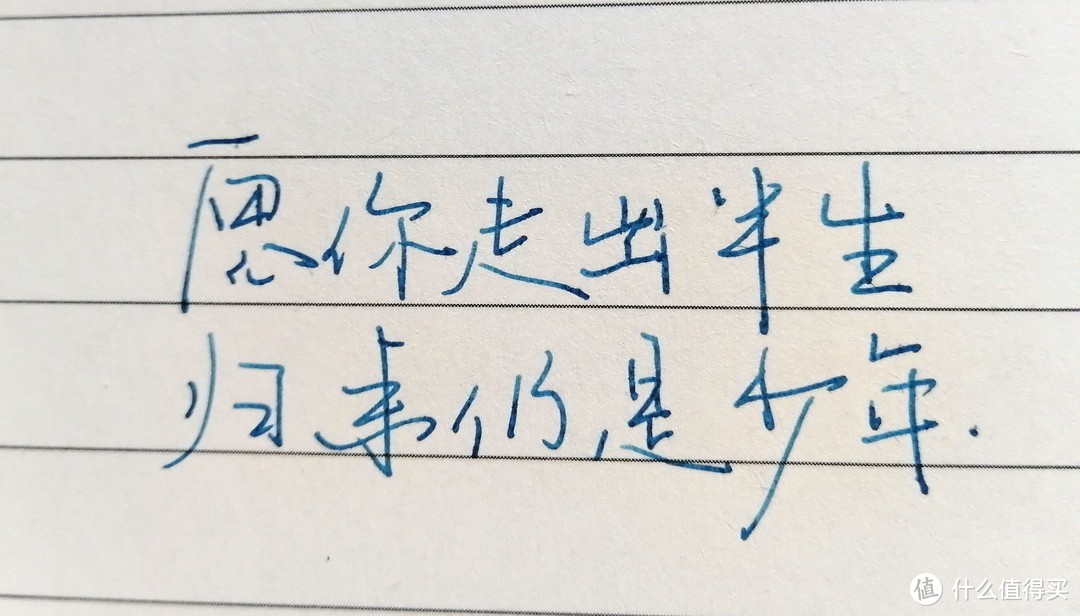 愿你走出半生
归来仍是少年.
值 什么值得买